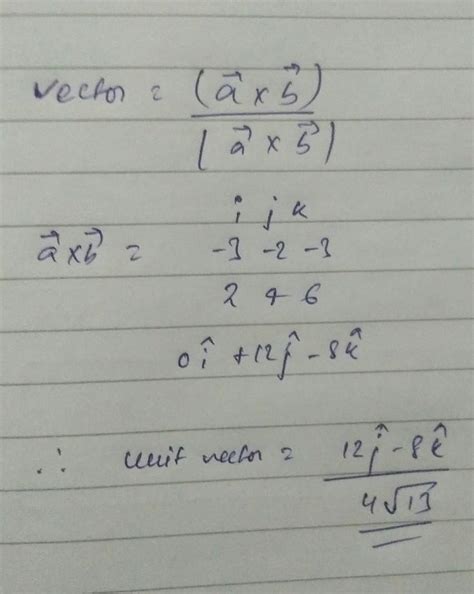 vector = (a⃗ × b⃗)
|a⃗ × b⃗|
i j k
a⃗×b⃗ = -3 -2 -3
2 4 6
0î + 12ĵ - 8k̂
∴ unit vector = 12ĵ - 8k̂
4√13